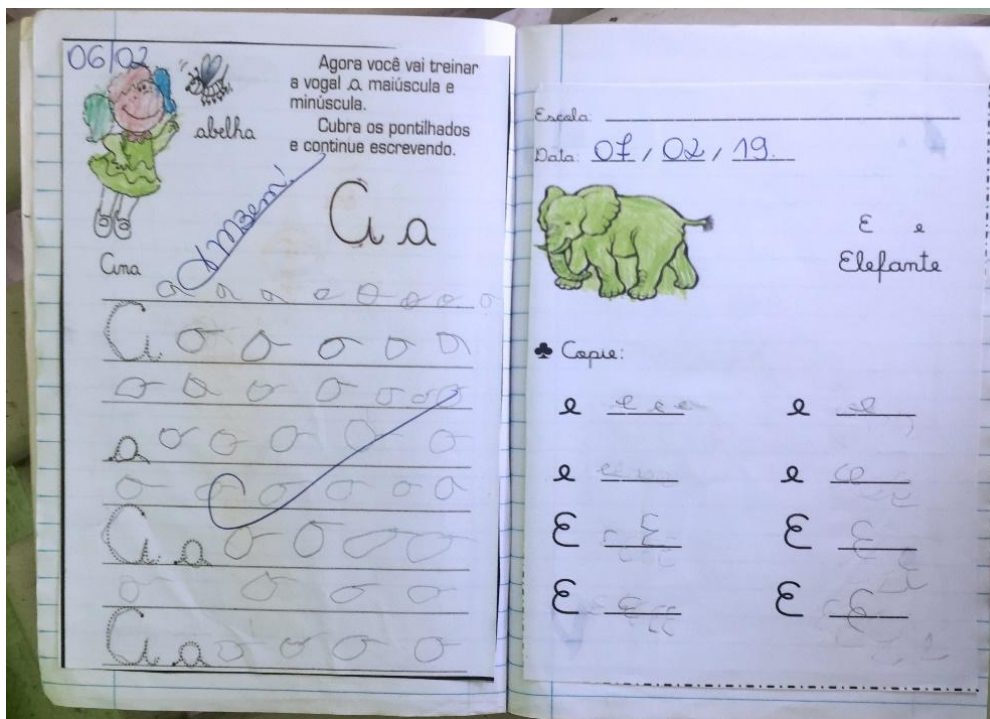 06/02
Agora você vai treinar
a vogal a maiúscula e
minúscula.
abelha
Cubra os pontilhados
e continue escrevendo.
A a
Ana
a a a a a a a a
A a a a a a
a a a a a a a
a a a a a a
a a a a a a
A a a a a a
a a a a
A a a a a a
Escola:
Data: 07/02/19.
E e
Elefante
♣ Copie:
e e e e e e
e e
E E E E
E E E E